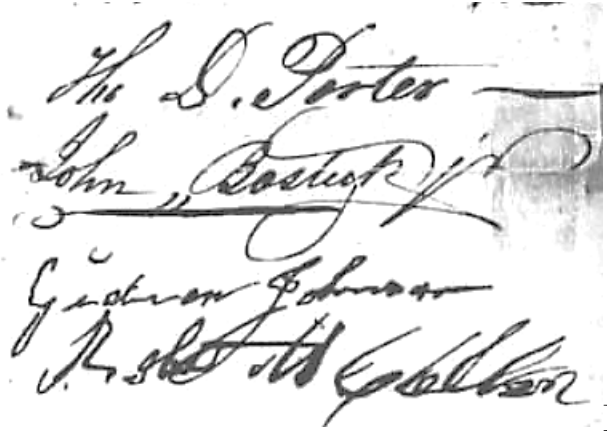 Tho D. Porter
John Bostick jr
Gideon Johnson
Robert